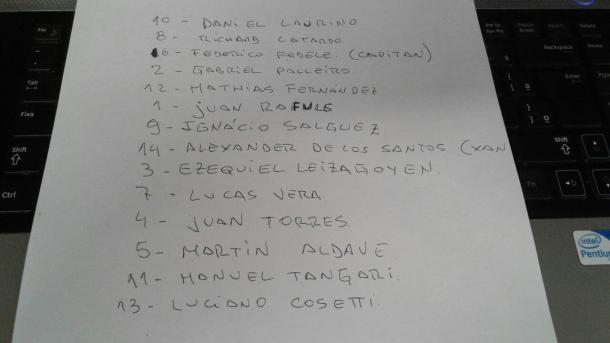 10 - DANIEL LAURINO
8 - RICHARD CATARDO
16 - FEDERICO FEDELE. (CAPITAN)
2 - GABRIEL PALLEIRO
12 - MATHIAS FERNÁNDEZ
1 - JUAN RAFULS
9 - IGNÁCIO SALGUEZ
14 - ALEXANDER DE LOS SANTOS (XAN
3 - EZEQUIEL LEIZAGOYEN.
7 - LUCAS VERA
4 - JUAN TORRES.
5 - MARTÍN ALDAVE.
11 - MANUEL TANGARI.
13 - LUCIANO COSETTI.
Tab
Fixa
Shift
Ctrl
Backspace
Home
Enter
Shift
End
intel
Pentium